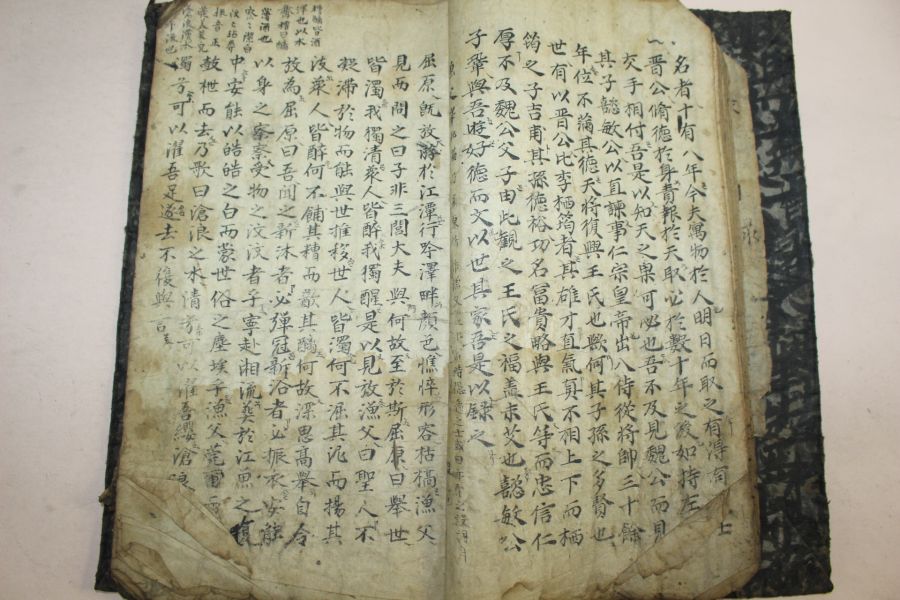 名者十有八年今夫寓物於人明日而取之有得有
晋公脩德於身責報於天取必於數十年之後如持左
交手相付吾是以知天之果可必也吾不及見魏公而見
其子懿敏公以直諫事仁宗皇帝出入侍從將帥三十餘
年位不滿其德天將復興王氏也歟何其子孫之多賢也
世有以晋公比李栖筠者其雄才直氣眞不相上下而栖
筠之子吉甫其孫德裕功名富貴略與王氏等而忠信仁
厚不及魏公父子由此觀之王氏之福盖未艾也懿敏公
子鞏與吾遊好德而文以世其家吾是以錄之
屈原旣放游於江潭行吟澤畔顔色憔悴形容枯槁漁父
見而問之曰子非三閭大夫與何故至於斯屈原曰擧世
皆濁我獨清衆人皆醉我獨醒是以見放漁父曰聖人不
凝滯於物而能與世推移世人皆濁何不淈其泥而揚其
波衆人皆醉何不餔其糟而歠其醨何故深思高擧自令
放為屈原曰吾聞之新沐者必彈冠新浴者必振衣安能
以身之察察受物之汶汶者乎寧赴湘流葬於江魚之腹
中安能以皓皓之白而蒙世俗之塵埃乎漁父莞爾而
枻而去乃歌曰滄浪之水清兮可以濯吾纓滄浪
濁兮可以濯吾足遂去不復與言